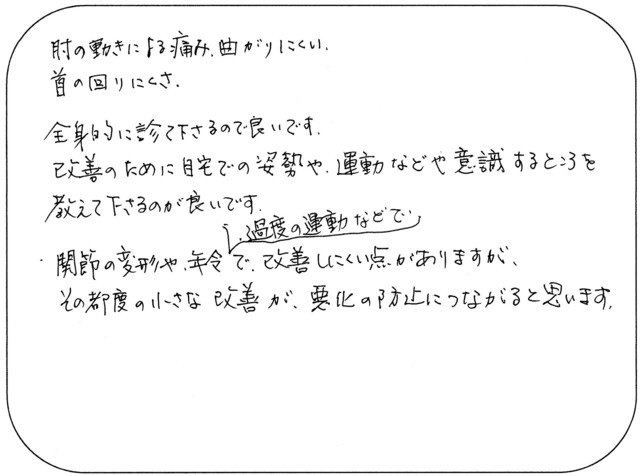 肘の動きによる痛み.曲がりにくい.
首の回りにくさ.
全身的に診て下さるので良いです.
改善のために自宅での姿勢や.運動などや意識するところを
教えて下さるのが良いです.
.過度の運動などで
・関節の変形や.年令で.改善しにくい点がありますが、
その都度の小さな改善が、悪化の防止につながると思います.